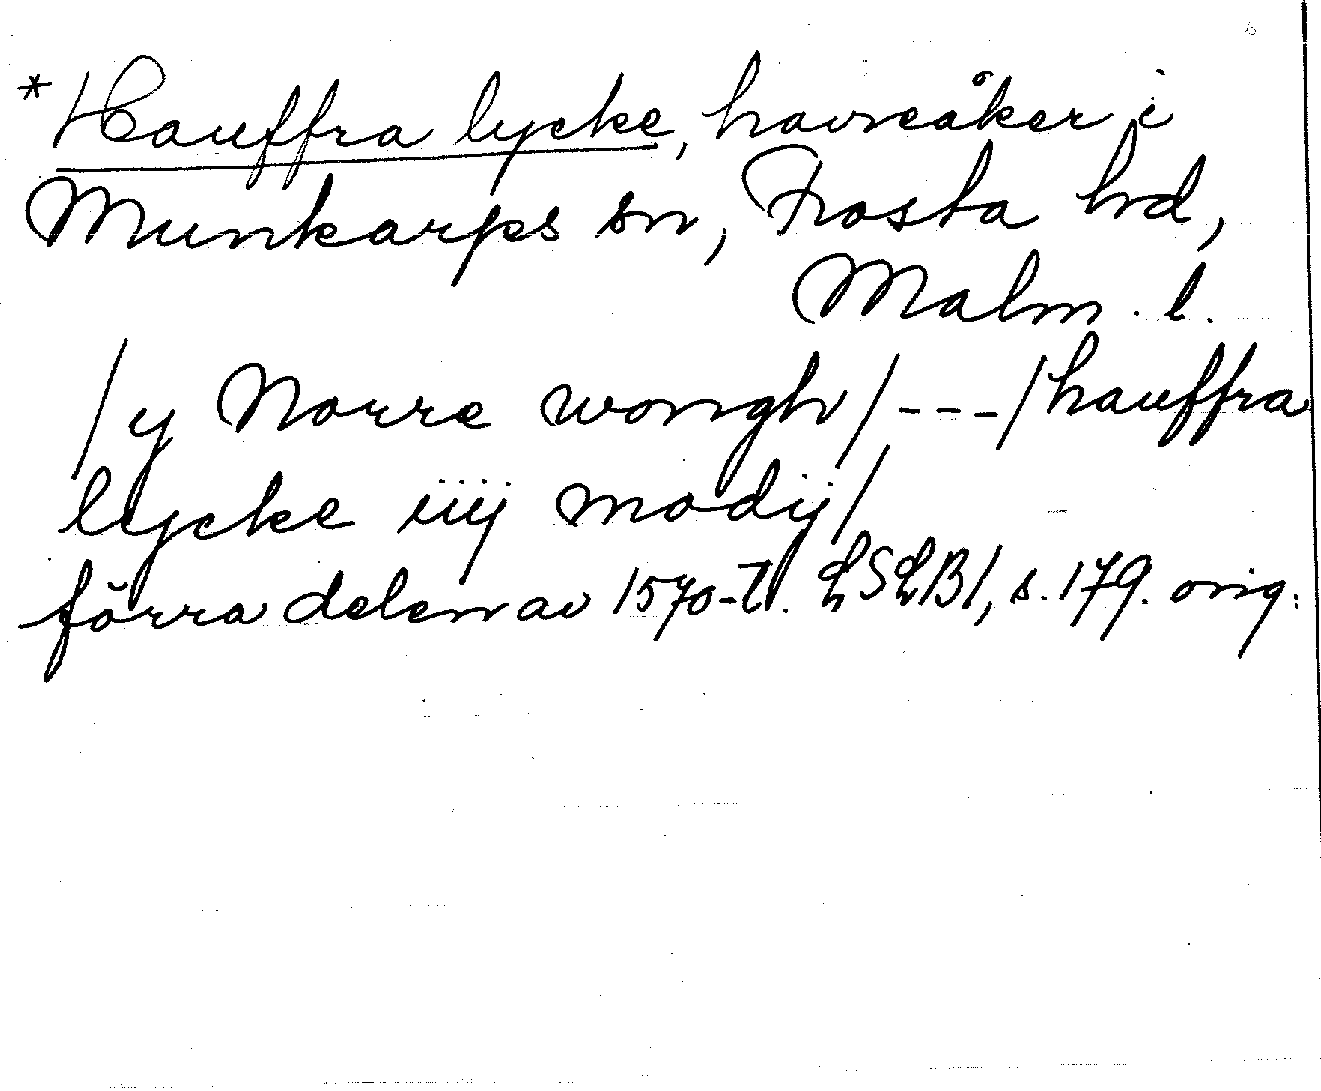 *Hauffra lycke, havreåker i
Munkarps sn, Frosta hd,
Malm. l.
/y Norre wongh/---/hauffra
lycke iiij mo dij/
förra delen av 1570-t. LSLB1, s. 179. orig.